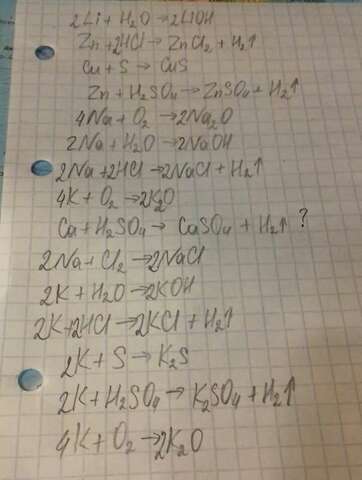 2Li + H₂O → 2LiOH
Zn + 2HCl → ZnCl₂ + H₂↑
Cu + S → CuS
Zn + H₂SO₄ → ZnSO₄ + H₂↑
4Na + O₂ → 2Na₂O
2Na + H₂O → 2NaOH
2Na + 2HCl → 2NaCl + H₂↑
4K + O₂ → 2K₂O
Ca + H₂SO₄ → CaSO₄ + H₂↑ ?
2Na + Cl₂ → 2NaCl
2K + H₂O → 2KOH
2K + 2HCl → 2KCl + H₂↑
2K + S → K₂S
2K + H₂SO₄ → K₂SO₄ + H₂↑
4K + O₂ → 2K₂O